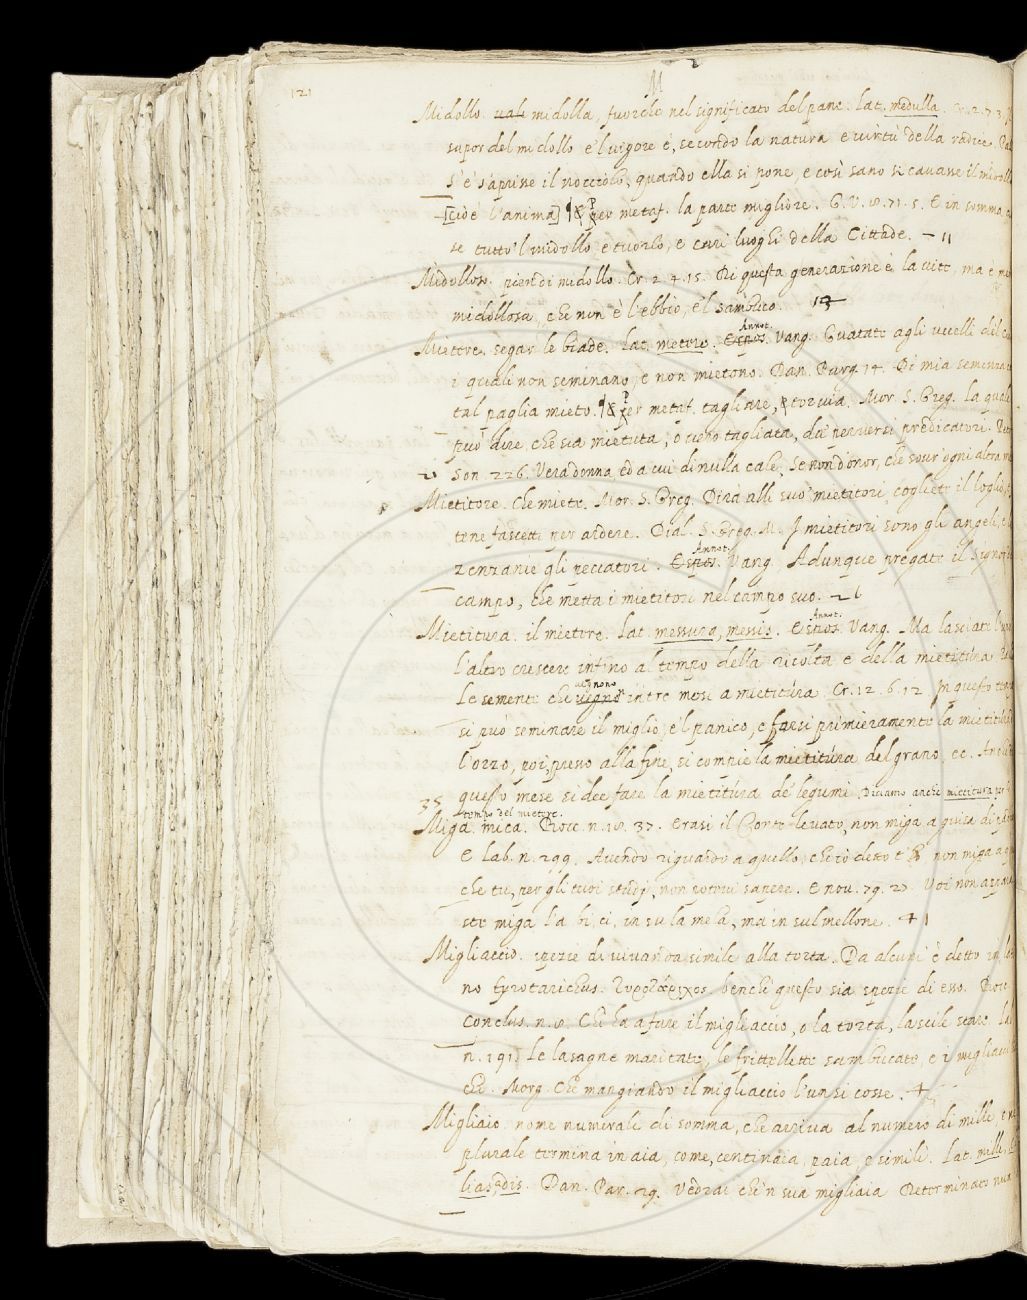 121
M
Midollo. vale midolla, fuorchè nel significato del pane. Lat. medulla.
supor del midollo e 'l vigore è, secondo la natura e virtù della radice.
s'è s'aprisse il nocciolo, quando ella si pone, e così sano si cavasse il
[cioè l'anima] ¶ & Per metaf. la parte migliore. G. V. 10. 71. 5. E in somma
se tutto 'l midollo, e tuorlo, e cari luoghi della Cittade. – 11
Midolloso. pien di midollo. Cr. 2. 4. 15. Di questa generazione è la vite, ma è
midollosa, che non è l'ebbio, e 'l sambuco. 13
Annot.
Mietere. segar le biade. Lat. metere. Espos. Vang. Guatate agli uccelli del
i quali non seminano, e non mietono. Dan. Purg. 14. Di mia semenza
tal paglia mieto. ¶ & Per metaf. tagliare, troncare. Mor. S. Greg. La quale
può dire, che sia mietuta, o vero tagliata, da' perversi predicatori.
20 Son. 226. Vera donna, ed a cui di nulla cale, Se non d'onor, che sovr'ogni altra
Mietitore. Che miete. Mor. S. Greg. Dirà alli suo' mietitori, cogliete il loglio,
tene fascetti per ardere. Dial. S. Greg. M. I mietitori sono gli angeli,
Annot.
zenzanie gli peccatori. Espos. Vang. Adunque pregate il Signor
campo, che metta i mietitori nel campo suo. – 26
Annot.
Mietitura. il mietere. Lat. messura, messis. Espos. Vang. Ma lasciate l'uno
l'altro crescere infino al tempo della ricolta e della mietitura
vegnono
Le sementi che vegno' intre mesi a mietitura. Cr. 12. 6. 12. In questo
si può seminare il miglio, e 'l panico, e farsi primieramente la mietitura
l'orzo, poi, presso alla fine, si compie la mietitura del grano, ec.
35 questo mese si dee fare la mietitura de' legumi. Diciamo anche mietitura
tempo del mietere.
Miga. mica. Bocc. n. 18. 37. Erasi il Conte levato, non miga a guisa di
E Lab. n. 299. Avendo riguardo a quello, che io detto t' non miga a
che tu, per gli tuoi studj, non potevi sapere. E nov. 79. 27. Voi non
ste miga l'a bi ci, in su la mela, ma in sul mellone. + 1
Migliaccio. spezie di vivanda simile alla torta. Da alcuni è detto in
no tyrotarichus. τυροτάριχος. benchè questo sia spezie di esso. Bocc.
Conclus. n. 10. Chi ha a fare il migliaccio, o la torta, lascile stare.
n. 191. Le lasagne maritate, le frittellette sambucate, e i migliacci
chi. Morg. Che mangiando il migliaccio l'un si cosse. +
Migliaio. nome numerale di somma, che arriva al numero di mille,
plurale termina in aia, come, centinaia, paia, e simili. Lat. mille,
lias, adis. Dan. Par. 29. Vedrai che 'n sua migliaia Determinato